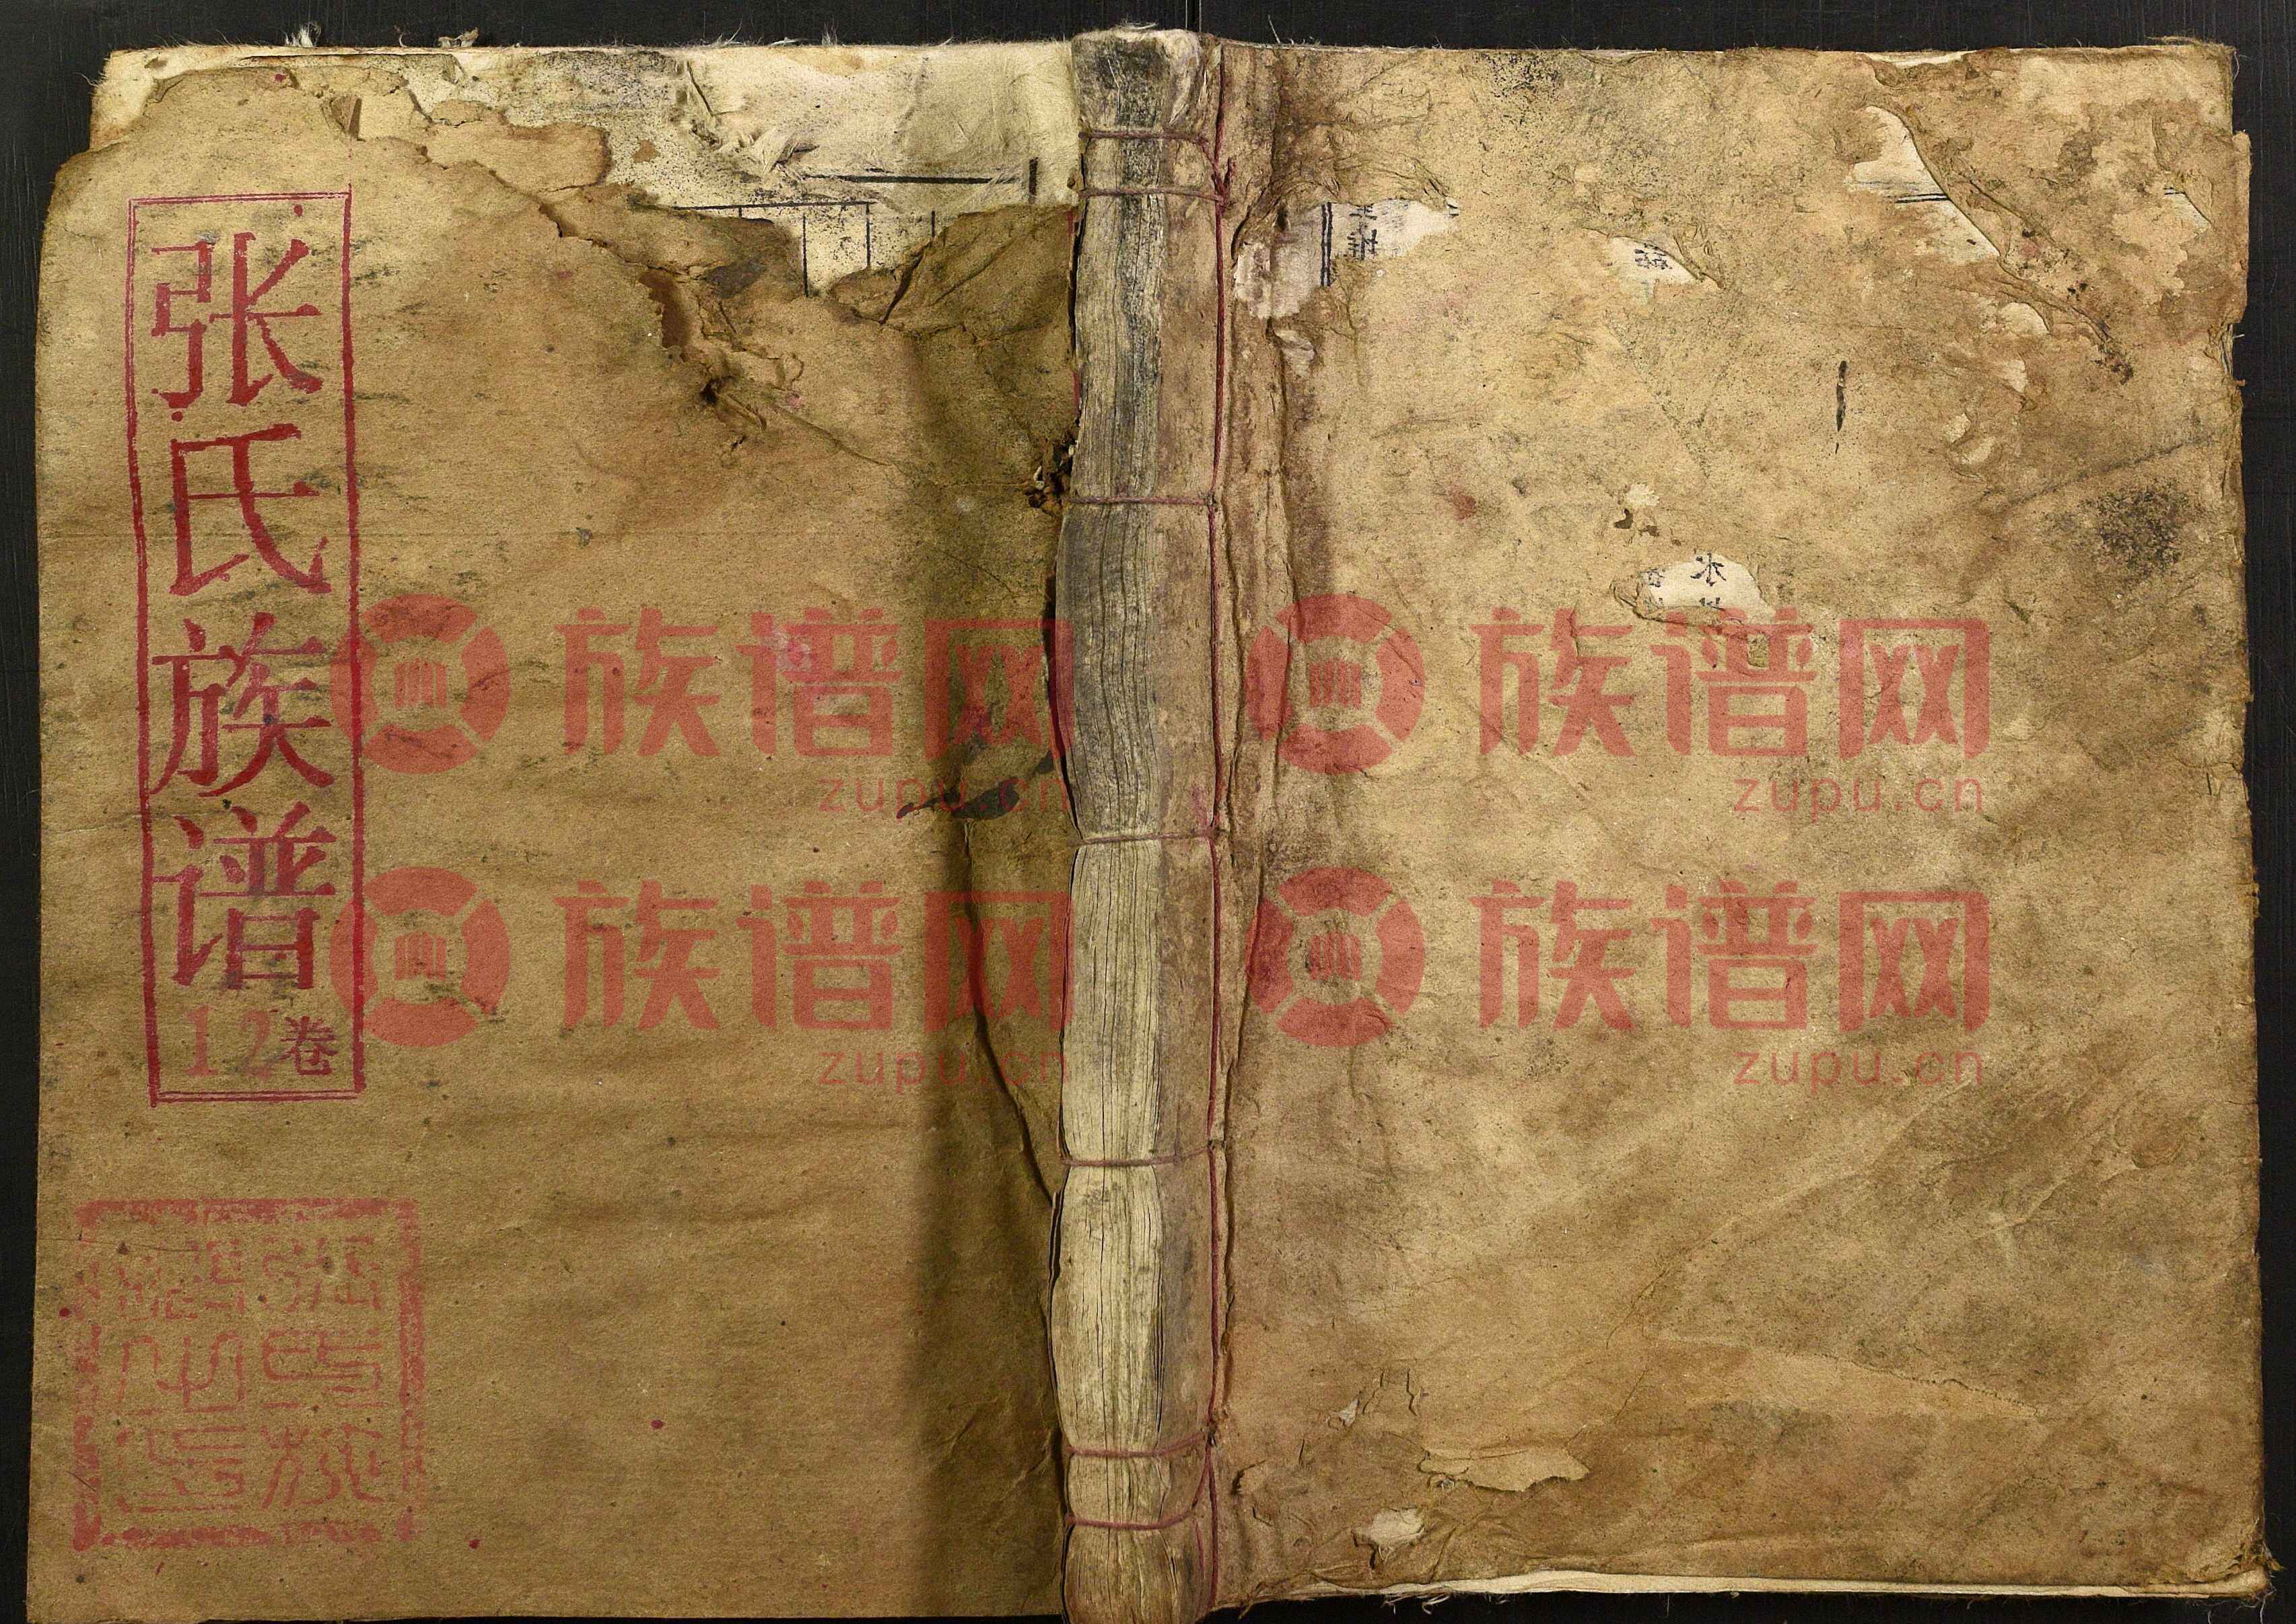 张氏族谱
12卷
水
族谱网
zupu.cn
族谱网
zupu.cn
族谱网
zupu.cn
族谱网
zupu.cn